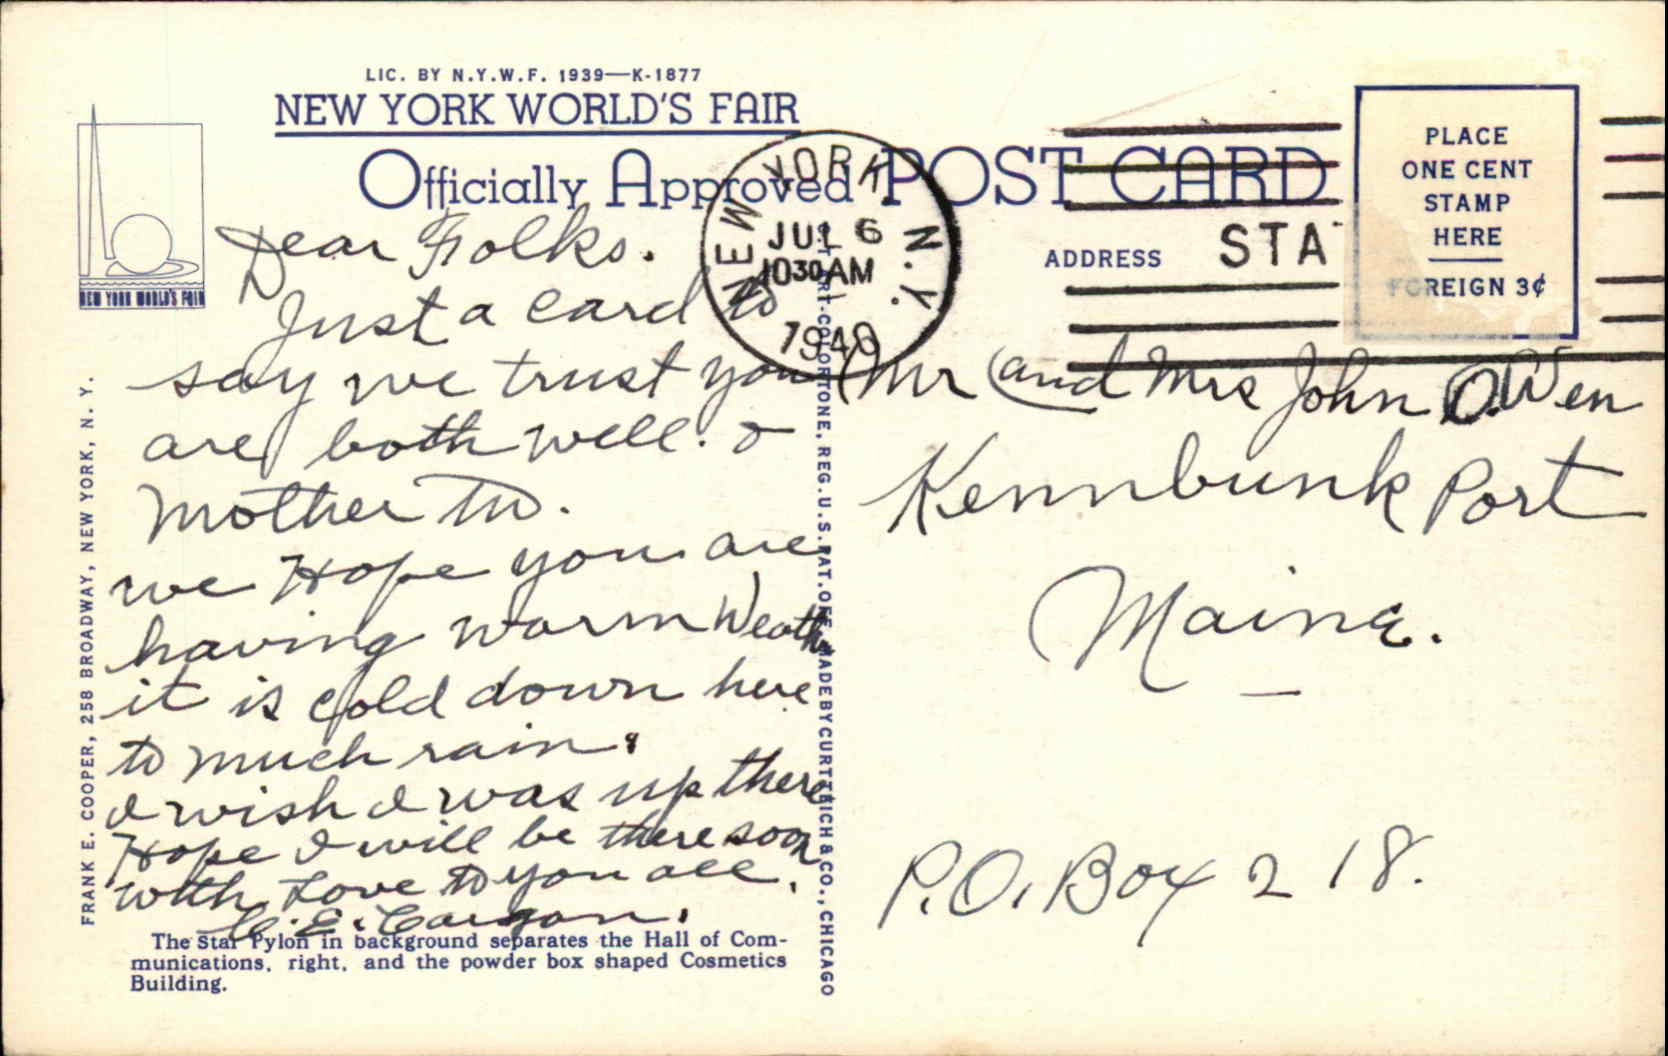 LIC. BY N.Y.W.F. 1939—K-1877
NEW YORK WORLD'S FAIR
Officially Approved POST CARD
NEW YORK WORLD'S FAIR
NEW YORK, N.Y.
JUL 6
1030 AM
1940
ADDRESS
STA
PLACE
ONE CENT
STAMP
HERE
FOREIGN 3¢
Dear Folks.
Just a card to
say we trust you
are both well. &
Mother too.
we Hope you are
having warm Weather
it is cold down here
to much rain.
I wish I was up there
Hope I will be there soon
with Love to you all.
C. E.
Mr and Mrs John O. Wen
Kennbunk Port
Maine.
P.O. Box 218.
FRANK E. COOPER, 258 BROADWAY, NEW YORK, N. Y.
ART-COLORTONE, REG. U.S. PAT. OFF. MADE BY CURT TEICH & CO., CHICAGO
The Star Pylon in background separates the Hall of Com-
munications, right, and the powder box shaped Cosmetics
Building.